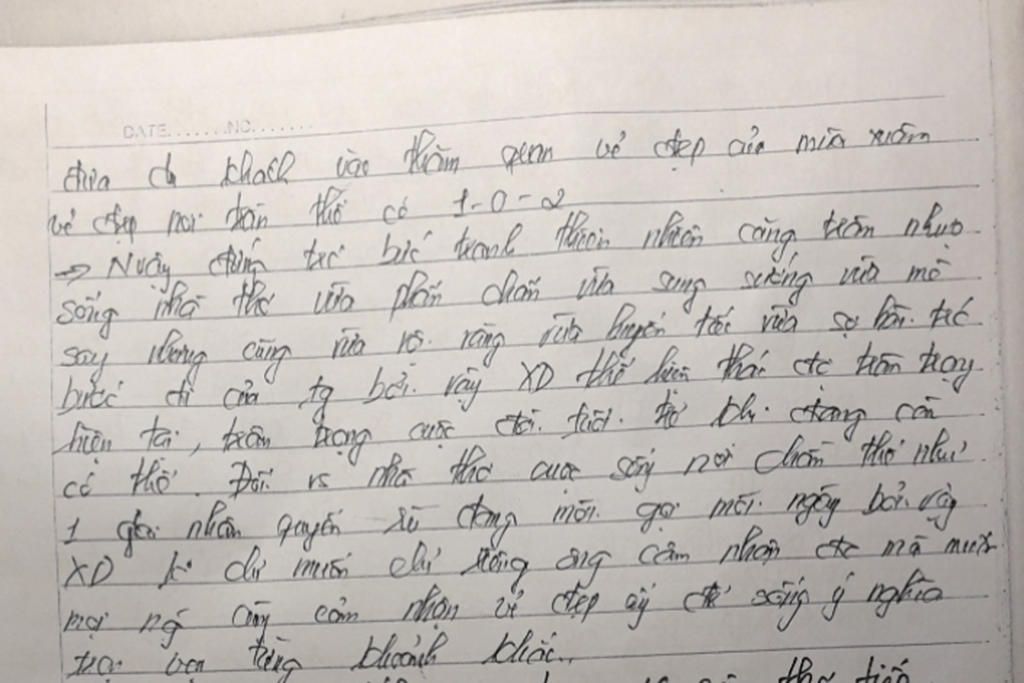 DATE.......NO.......
đưa du khách vào thăm quan vẻ đẹp của mùa xuân
vẻ đẹp nơi trần thế có 1-0-2
→ Ngay đứng trc bức tranh thiên nhiên căng tràn nhựa
sống nhà thơ vừa phấn chấn vừa sung sướng vừa mê
say nhưng cũng vừa vừa luyến tiếc vừa sợ hãi trc
bước đi của tg bởi vậy XD thể hiện thái độ trân trọng
hiện tại, trân trọng cuộc đời tuổi trẻ khi đang còn
có thể. Đối vs nhà thơ cuộc sống nơi chốn thế như
1 nhân quyến rũ đang mời gọi mỗi ngày bởi vậy
XD k chỉ muốn chỉ riêng ông cảm nhận đc mà muốn
mọi ng cùng cảm nhận vẻ đẹp ấy để sống ý nghĩa
trọn vẹn từng khoảnh khắc..